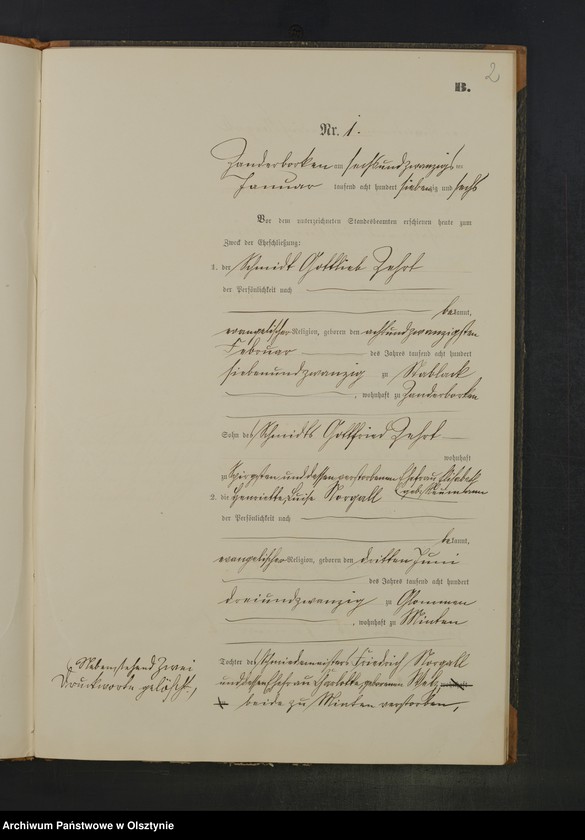 2
B.
Nr. 1.
Zanderborken am sechsundzwanzigsten
Januar tausend acht hundert siebenzig und sechs
Vor dem unterzeichneten Standesbeamten erschienen heute zum
Zweck der Eheschließung:
1. der Schmidt Gottlieb Zehrt
der Persönlichkeit nach
bekannt,
evangelischer Religion, geboren den achtundzwanzigsten
Februar des Jahres tausend acht hundert
siebenundzwanzig zu Nablack
, wohnhaft zu Zanderborken
Sohn des Schmidts Gottfried Zehrt
wohnhaft
zu und dessen verstorbenen Ehefrau Elisabeth
geb. Neumann
2. die Henriette Luise Norgall
der Persönlichkeit nach
bekannt,
evangelischer Religion, geboren den dritten Juni
des Jahres tausend acht hundert
dreiundzwanzig zu Glommen
, wohnhaft zu Minten
Tochter des Schmiedemeisters Friedrich Norgall
und dessen Ehefrau Charlotte, geborenen
beide zu Minten verstorben,
Nebenstehend zwei
Druckworte gelöscht,
Archiwum Państwowe w Olsztynie